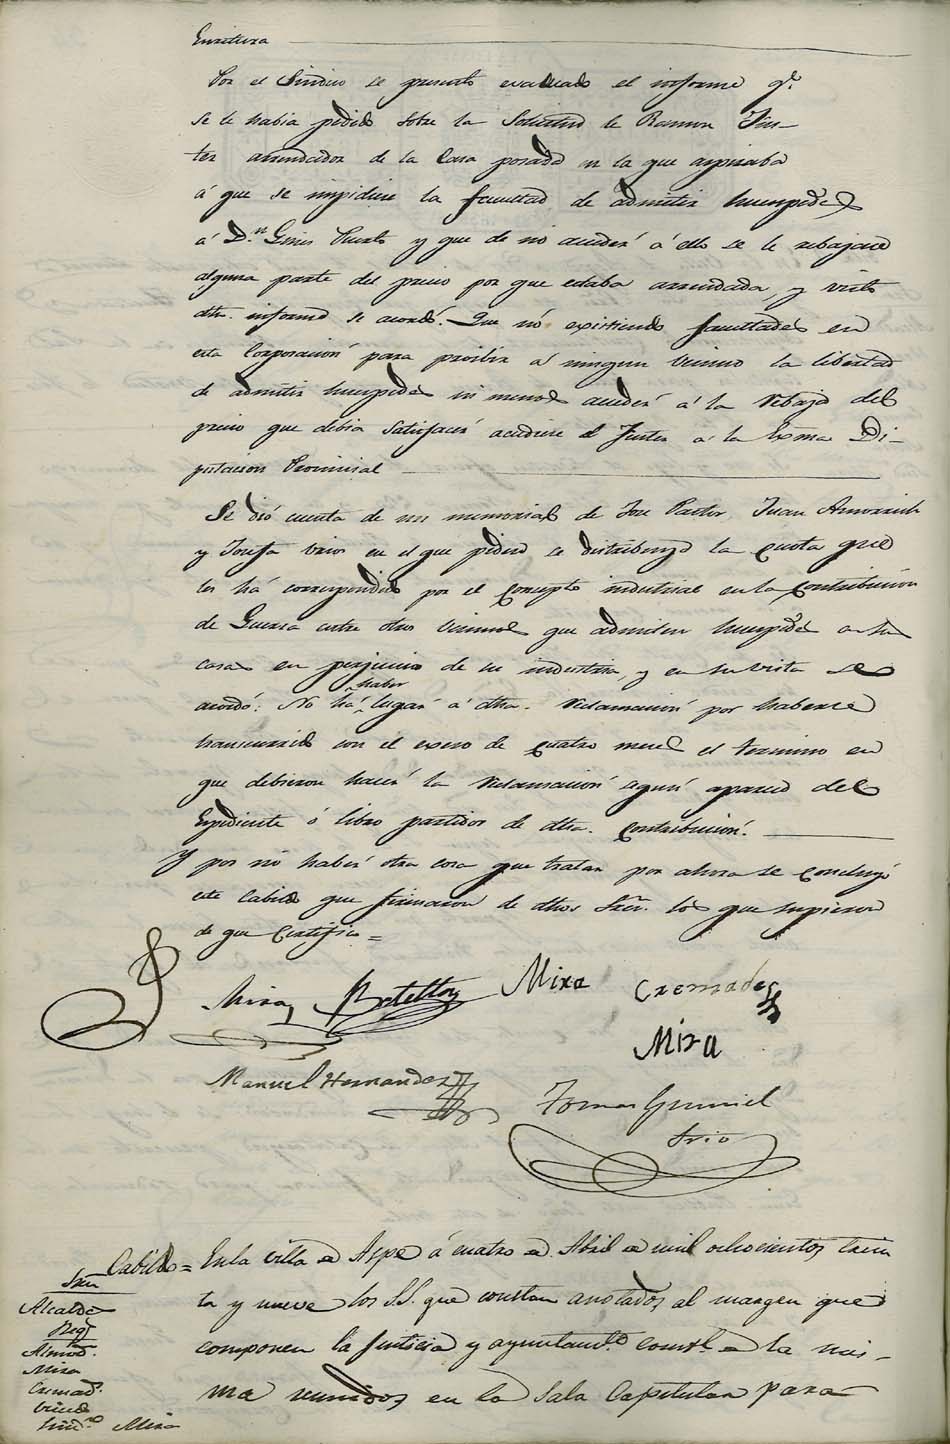 Escritura
Por el Sindico se presentó evacuado el informe q.e
se le habia pedido sobre la Solicitud de Ramon Jus-
ter arrendador de la Casa posada en la que aspiraba
á que se impidiese la facultad de admitir huespedes
á D.n Gines Puerto y que de no acceder á ello se le rebajase
alguna parte del precio por que estaba arrendada, y visto
dho. informe se acordó: Que nó existiendo facultades en
esta Corporacion para proibir á ningun vecino la libertad
de admitir huespedes ni menos acceder á la rebaja del
precio que debia satisfacer acudiese el Juster á la Exma Di-
putacion Provincial
Se dió cuenta de un memorial de Jose Pastor, Juan Amorrich
y Josefa en el que piden se distribuya la cuota que
les há correspondido por el Concepto industrial en la Contribucion
de Guerra entre otros vecinos que admiten huespedes en su
casa en perjuicio de su industria, y en su vista se
haber
acordó: No há lugar á dha. reclamacion por haberse
transcurrido con el exceso de cuatro meses el termino en
que debieron hacer la reclamacion segun aparece del
Expediente ó libro partidor de dha. Contribucion.
Y por nó haber otra cosa que tratar por ahora se concluyó
este Cabildo que firmaron de dhos Sres. los que supieron
de que Certifico =
Mira Botella Mira Cremades
Mira
Manuel Hernandez
Tomas Gumiel
Srio
Cabildo = En la villa de Aspe á cuatro de Abril de mil ochocientos trein
ta y nueve los S.S. que constan anotados al margen que
componen la Justicia y ayuntam.to const.l de la mis-
ma reunidos en la Sala Capitular para
Sres
Alcalde
Reg.s
Almod.
Mira
Cremad.s
Vicedo
Sind.co Mira